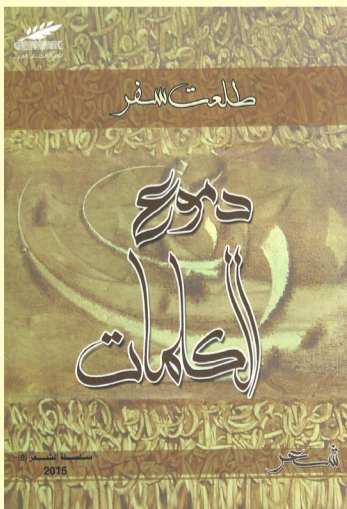 طلعت سفر
دموع
الكلمات
شعر
سلسلة الشعر (9)
2015